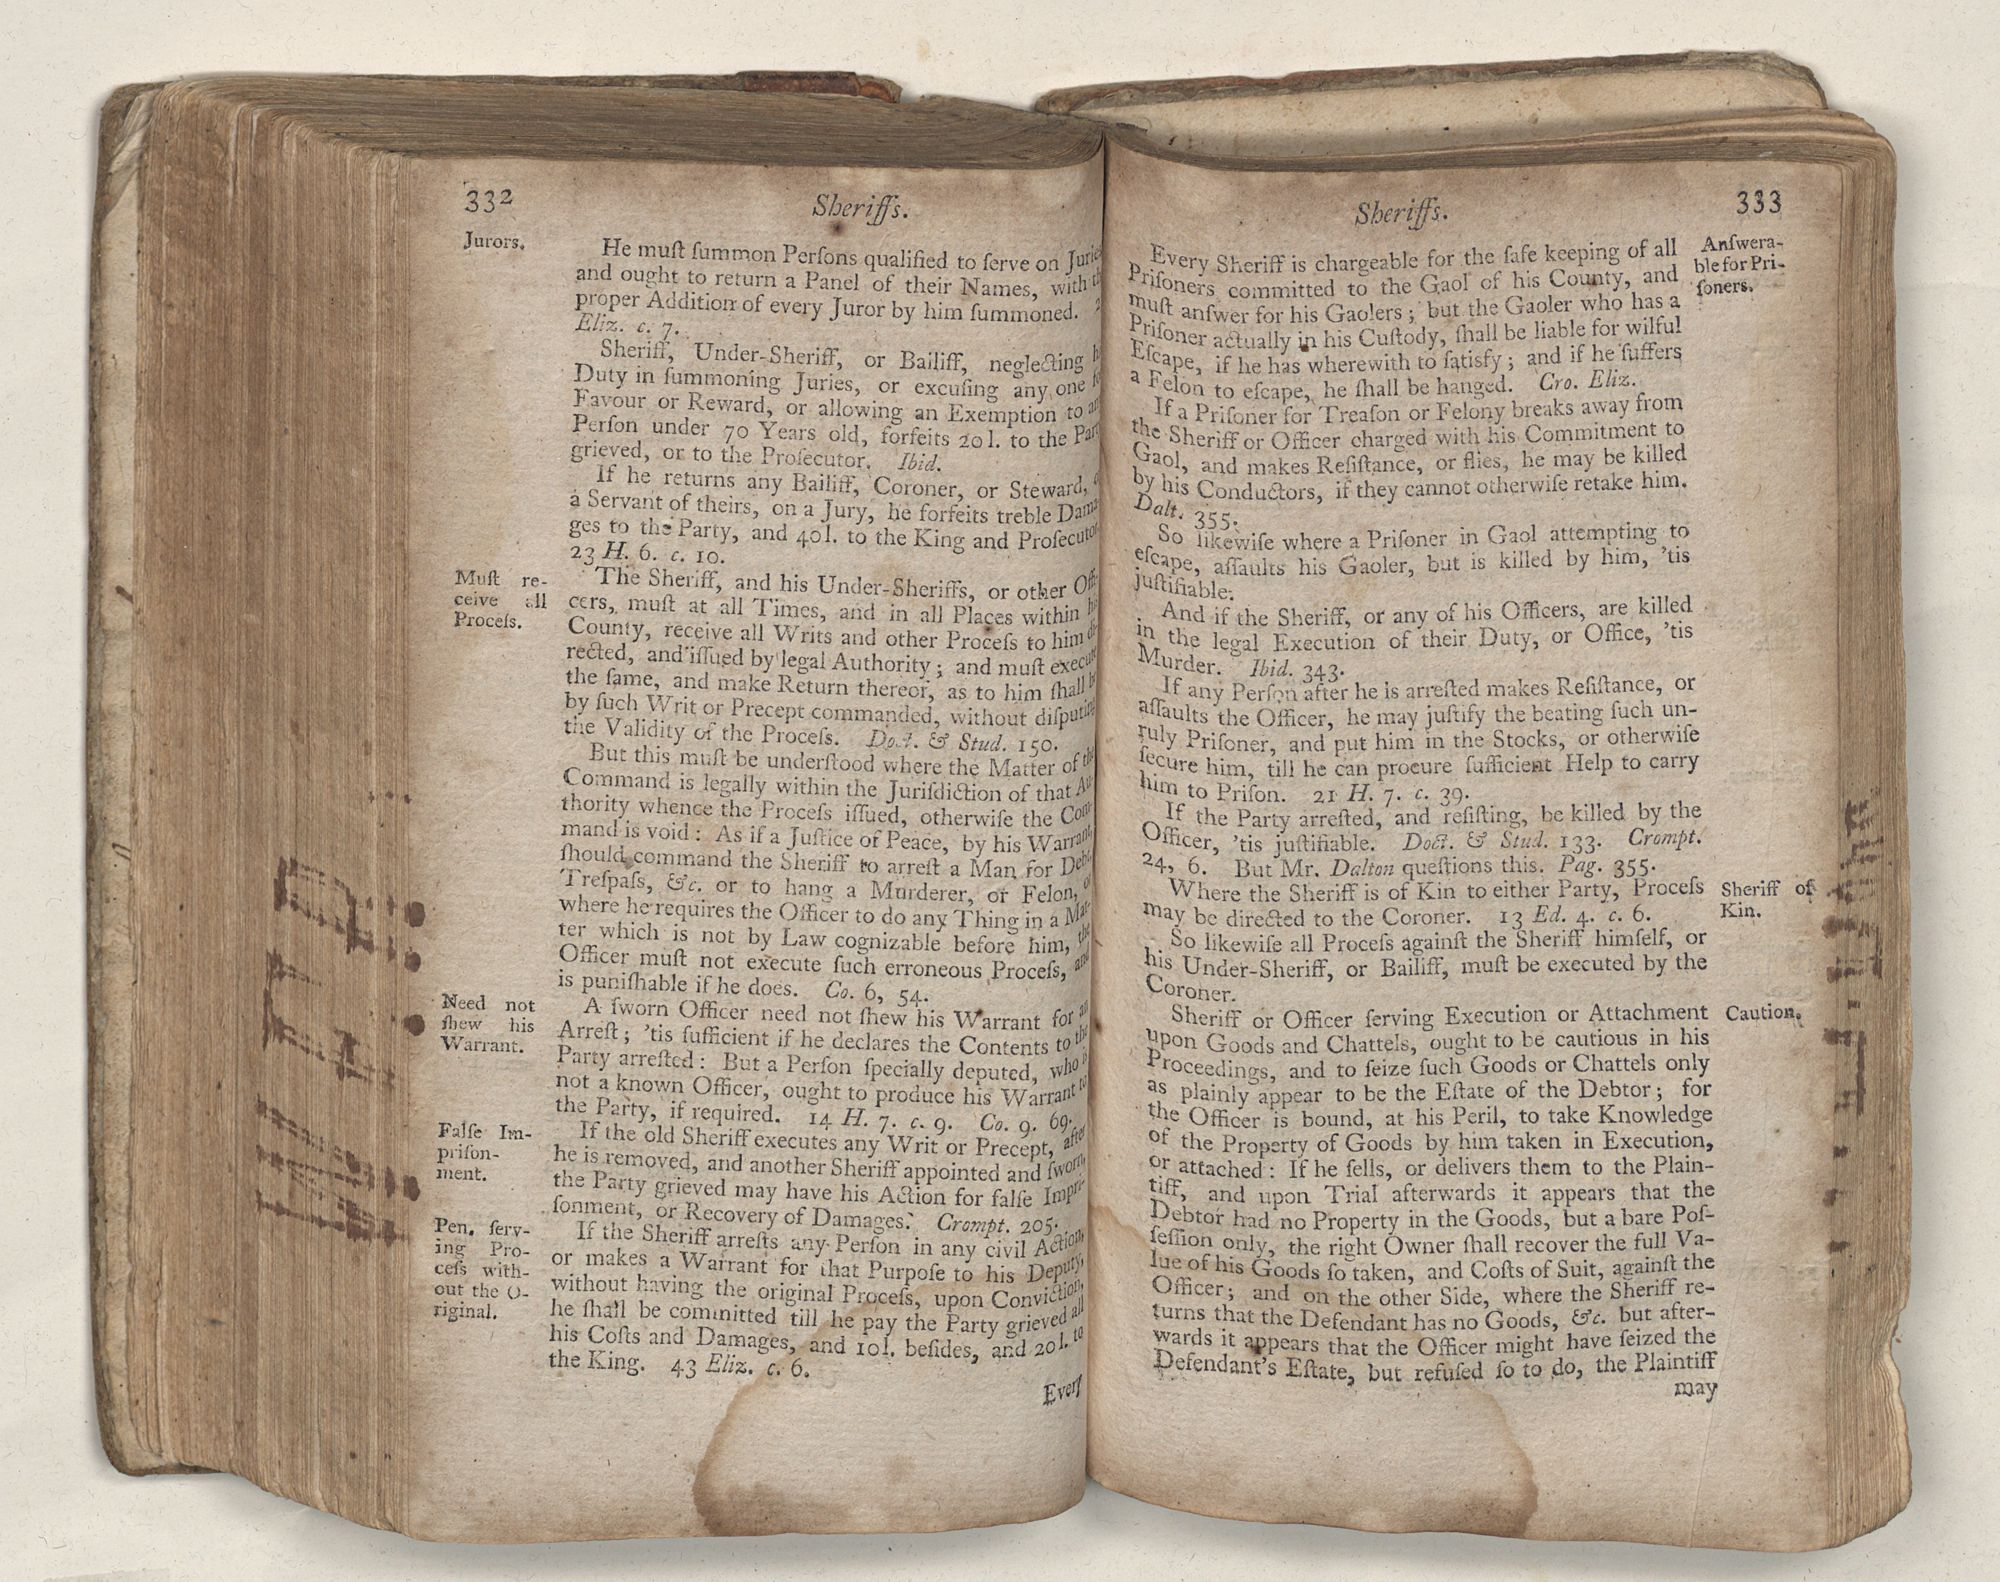 332
Sheriffs.
Jurors.
He muſt ſummon Perſons qualified to ſerve on Jurie
and ought to return a Panel of their Names, with th
proper Addition of every Juror by him ſummoned. 2
Eliz. c. 7.
Sheriff, Under-Sheriff, or Bailiff, neglecting h
Duty in ſummoning Juries, or excuſing any one fo
Favour or Reward, or allowing an Exemption to an
Perſon under 70 Years old, forfeits 20 l. to the Part
grieved, or to the Proſecutor. Ibid.
If he returns any Bailiff, Coroner, or Steward, o
a Servant of theirs, on a Jury, he forfeits treble Dama
ges to the Party, and 40 l. to the King and Proſecutor
23 H. 6. c. 10.
Muſt re-
ceive all
Proceſs.
The Sheriff, and his Under-Sheriffs, or other Offi-
cers, muſt at all Times, and in all Places within his
County, receive all Writs and other Proceſs to him di-
rected, and iſſued by legal Authority; and muſt execute
the ſame, and make Return thereof, as to him ſhall be
by ſuch Writ or Precept commanded, without diſputing
the Validity of the Proceſs. Doct. & Stud. 150.
But this muſt be underſtood where the Matter of the
Command is legally within the Juriſdiction of that Au-
thority whence the Proceſs iſſued, otherwiſe the Com-
mand is void: As if a Juſtice of Peace, by his Warrant,
ſhould command the Sheriff to arreſt a Man for Debt,
Treſpaſs, &c. or to hang a Murderer, or Felon, or
where he requires the Officer to do any Thing in a Mat-
ter which is not by Law cognizable before him, the
Officer muſt not execute ſuch erroneous Proceſs, and
is puniſhable if he does. Co. 6, 54.
Need not
ſhew his
Warrant.
A ſworn Officer need not ſhew his Warrant for an
Arreſt; 'tis ſufficient if he declares the Contents to the
Party arreſted: But a Perſon ſpecially deputed, who is
not a known Officer, ought to produce his Warrant to
the Party, if required. 14 H. 7. c. 9. Co. 9. 69.
Falſe Im-
priſon-
ment.
If the old Sheriff executes any Writ or Precept, after
he is removed, and another Sheriff appointed and ſworn,
the Party grieved may have his Action for falſe Impri-
ſonment, or Recovery of Damages. Crompt. 205.
Pen. ſerv-
ing Pro-
ceſs with-
out the O-
riginal.
If the Sheriff arreſts any Perſon in any civil Action,
or makes a Warrant for that Purpoſe to his Deputy,
without having the original Proceſs, upon Conviction,
he ſhall be committed till he pay the Party grieved all
his Coſts and Damages, and 10 l. beſides, and 20 l. to
the King. 43 Eliz. c. 6.
Every
Sheriffs.
333
Anſwera-
ble for Pri-
ſoners.
Every Sheriff is chargeable for the ſafe keeping of all
Priſoners committed to the Gaol of his County, and
muſt anſwer for his Gaolers; but the Gaoler who has a
Priſoner actually in his Cuſtody, ſhall be liable for wilful
Eſcape, if he has wherewith to ſatisfy; and if he ſuffers
a Felon to eſcape, he ſhall be hanged. Cro. Eliz.
If a Priſoner for Treaſon or Felony breaks away from
the Sheriff or Officer charged with his Commitment to
Gaol, and makes Reſiſtance, or flies, he may be killed
by his Conductors, if they cannot otherwiſe retake him.
Dalt. 355.
So likewiſe where a Priſoner in Gaol attempting to
eſcape, aſſaults his Gaoler, but is killed by him, 'tis
juſtifiable.
And if the Sheriff, or any of his Officers, are killed
in the legal Execution of their Duty, or Office, 'tis
Murder. Ibid. 343.
If any Perſon after he is arreſted makes Reſiſtance, or
aſſaults the Officer, he may juſtify the beating ſuch un-
ruly Priſoner, and put him in the Stocks, or otherwiſe
ſecure him, till he can procure ſufficient Help to carry
him to Priſon. 21 H. 7. c. 39.
If the Party arreſted, and reſiſting, be killed by the
Officer, 'tis juſtifiable. Doct. & Stud. 133. Crompt.
24, 6. But Mr. Dalton queſtions this. Pag. 355.
Sheriff of
Kin.
Where the Sheriff is of Kin to either Party, Proceſs
may be directed to the Coroner. 13 Ed. 4. c. 6.
So likewiſe all Proceſs againſt the Sheriff himſelf, or
his Under-Sheriff, or Bailiff, muſt be executed by the
Coroner.
Caution.
Sheriff or Officer ſerving Execution or Attachment
upon Goods and Chattels, ought to be cautious in his
Proceedings, and to ſeize ſuch Goods or Chattels only
as plainly appear to be the Eſtate of the Debtor; for
the Officer is bound, at his Peril, to take Knowledge
of the Property of Goods by him taken in Execution,
or attached: If he ſells, or delivers them to the Plain-
tiff, and upon Trial afterwards it appears that the
Debtor had no Property in the Goods, but a bare Poſ-
ſeſſion only, the right Owner ſhall recover the full Va-
lue of his Goods ſo taken, and Coſts of Suit, againſt the
Officer; and on the other Side, where the Sheriff re-
turns that the Defendant has no Goods, &c. but after-
wards it appears that the Officer might have ſeized the
Defendant's Eſtate, but refuſed ſo to do, the Plaintiff
may